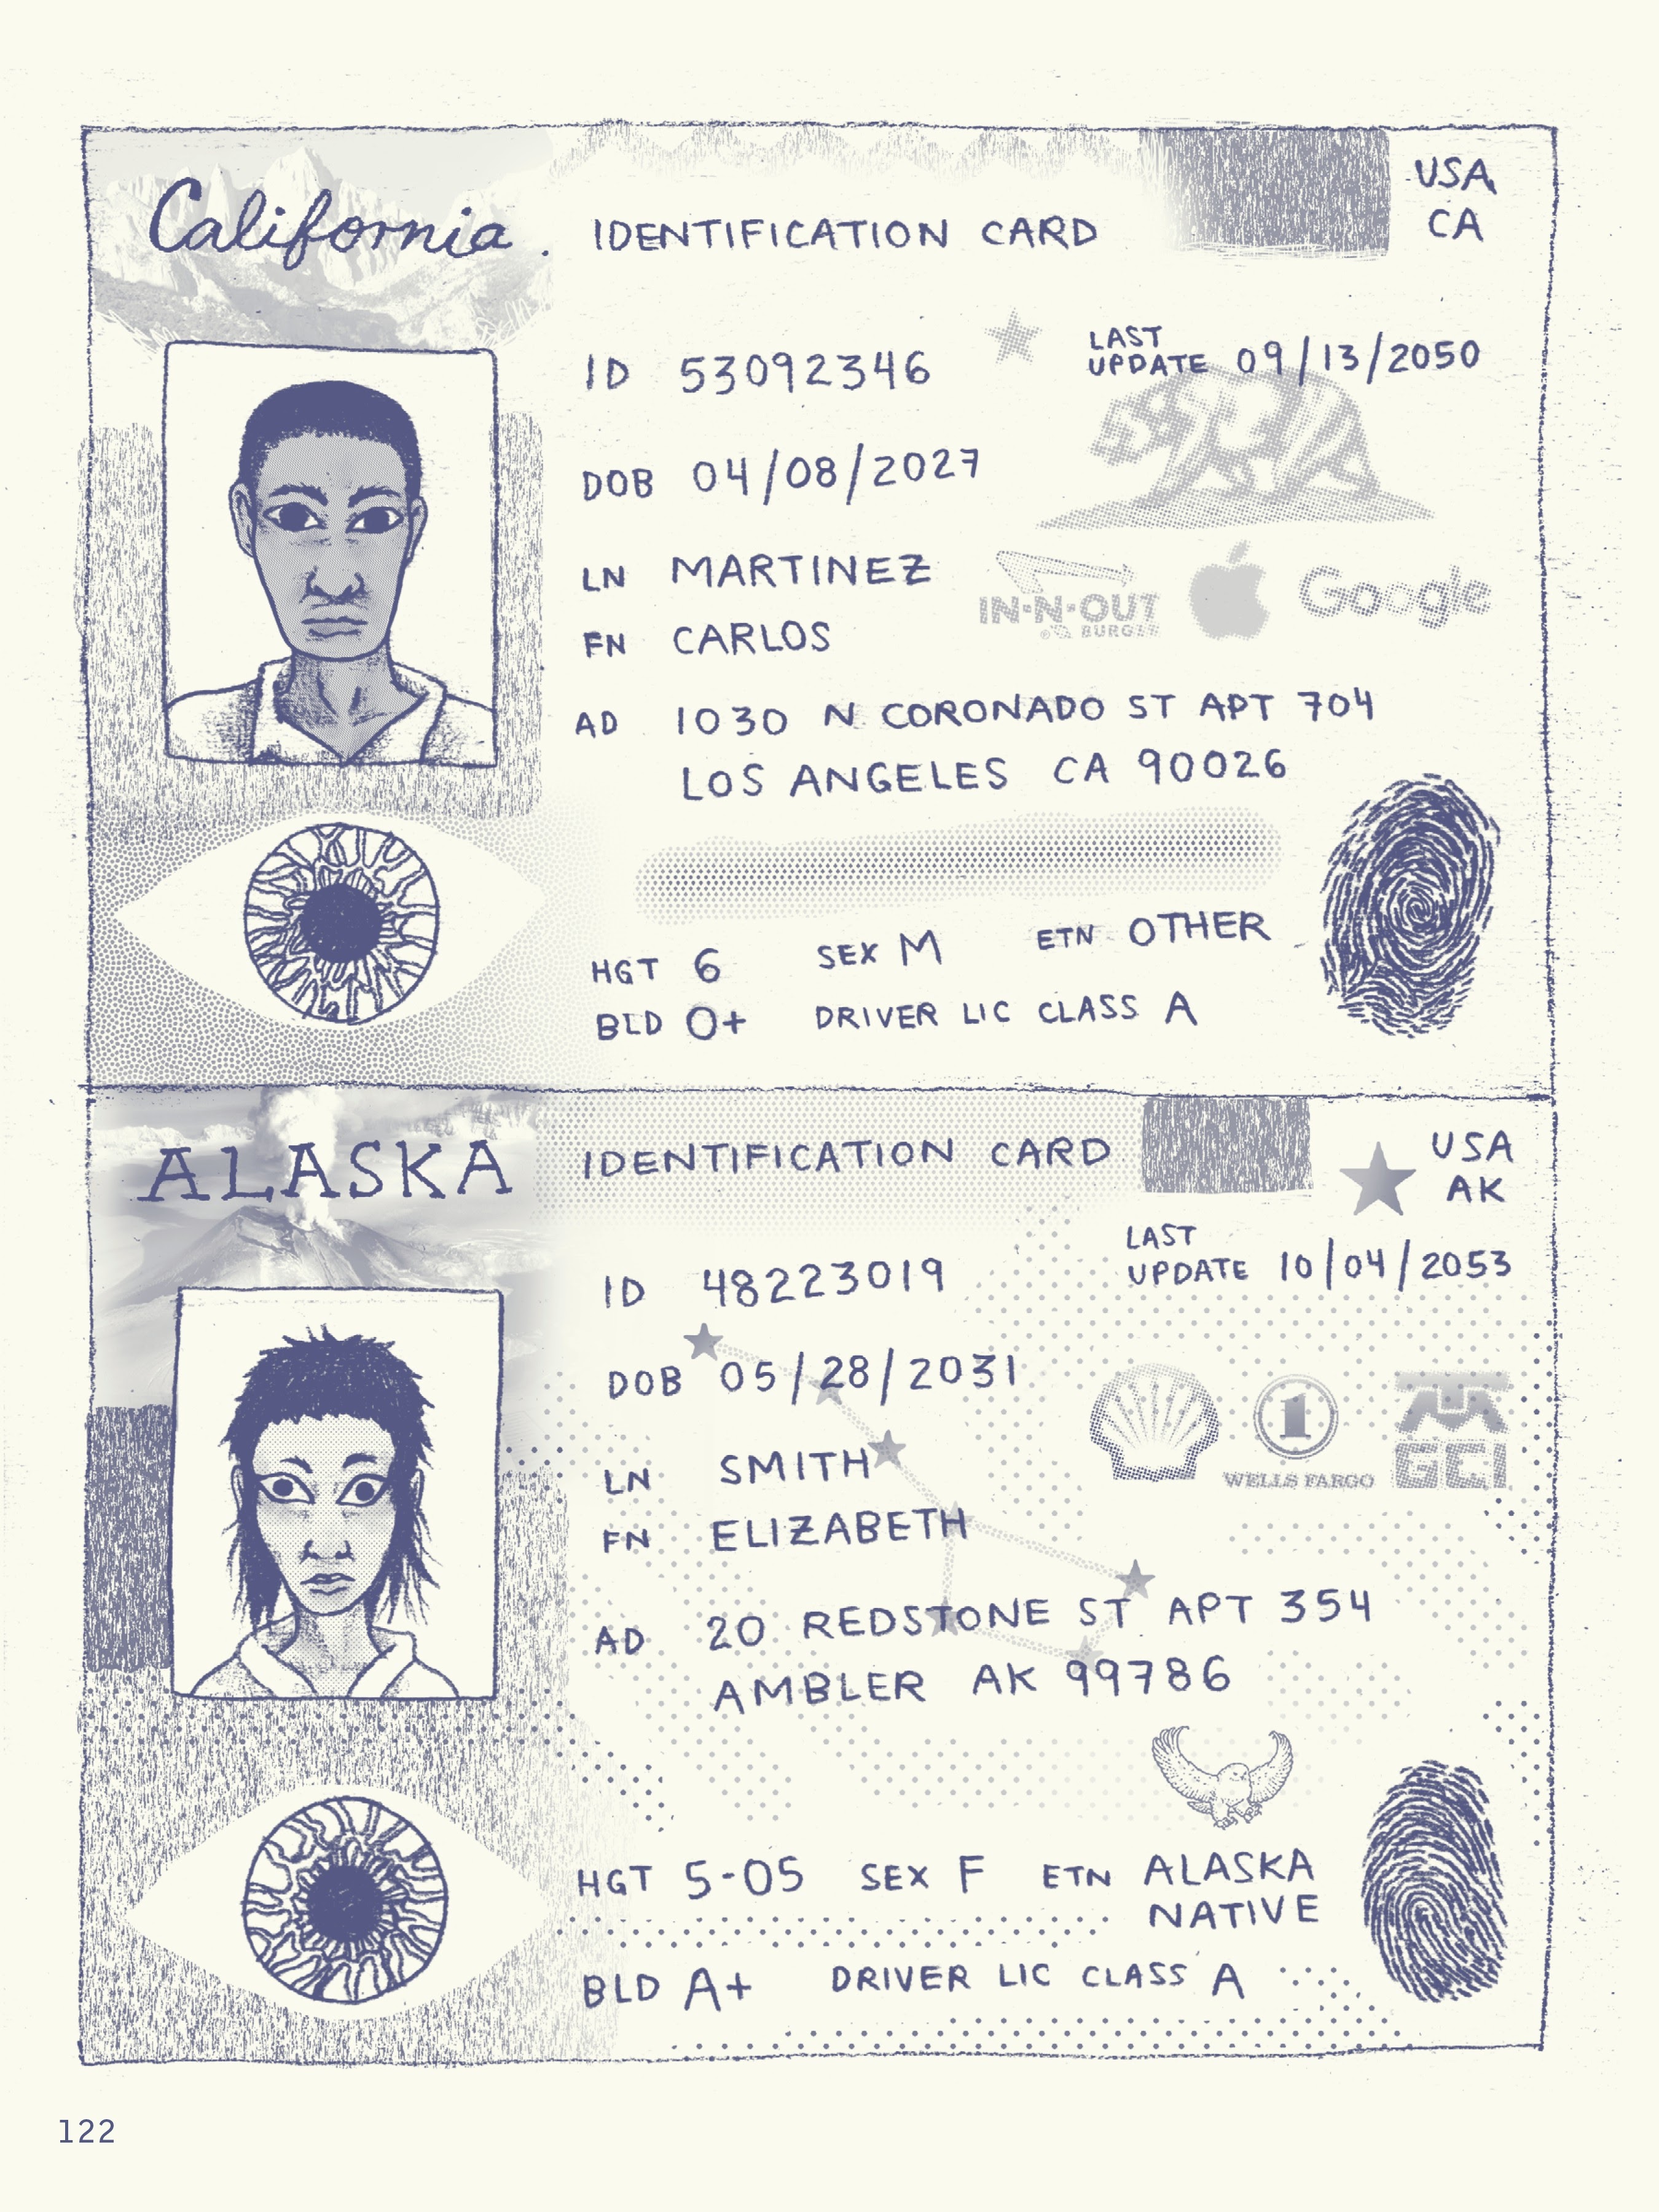 California.
IDENTIFICATION CARD
USA
CA
ID 53092346
LAST
UPDATE 09/13/2050
DOB 04/08/2027
LN MARTINEZ
FN CARLOS
IN-N-OUT
BURGER
Google
AD 1030 N CORONADO ST APT 704
LOS ANGELES CA 90026
HGT 6 SEX M ETN OTHER
BLD O+ DRIVER LIC CLASS A
ALASKA
IDENTIFICATION CARD
USA
AK
LAST
UPDATE 10/04/2053
ID 48223019
DOB 05/28/2031
LN SMITH
FN ELIZABETH
1
WELLS FARGO
GCI
AD 20 REDSTONE ST APT 354
AMBLER AK 99786
HGT 5-05 SEX F ETN ALASKA
NATIVE
BLD A+ DRIVER LIC CLASS A
122